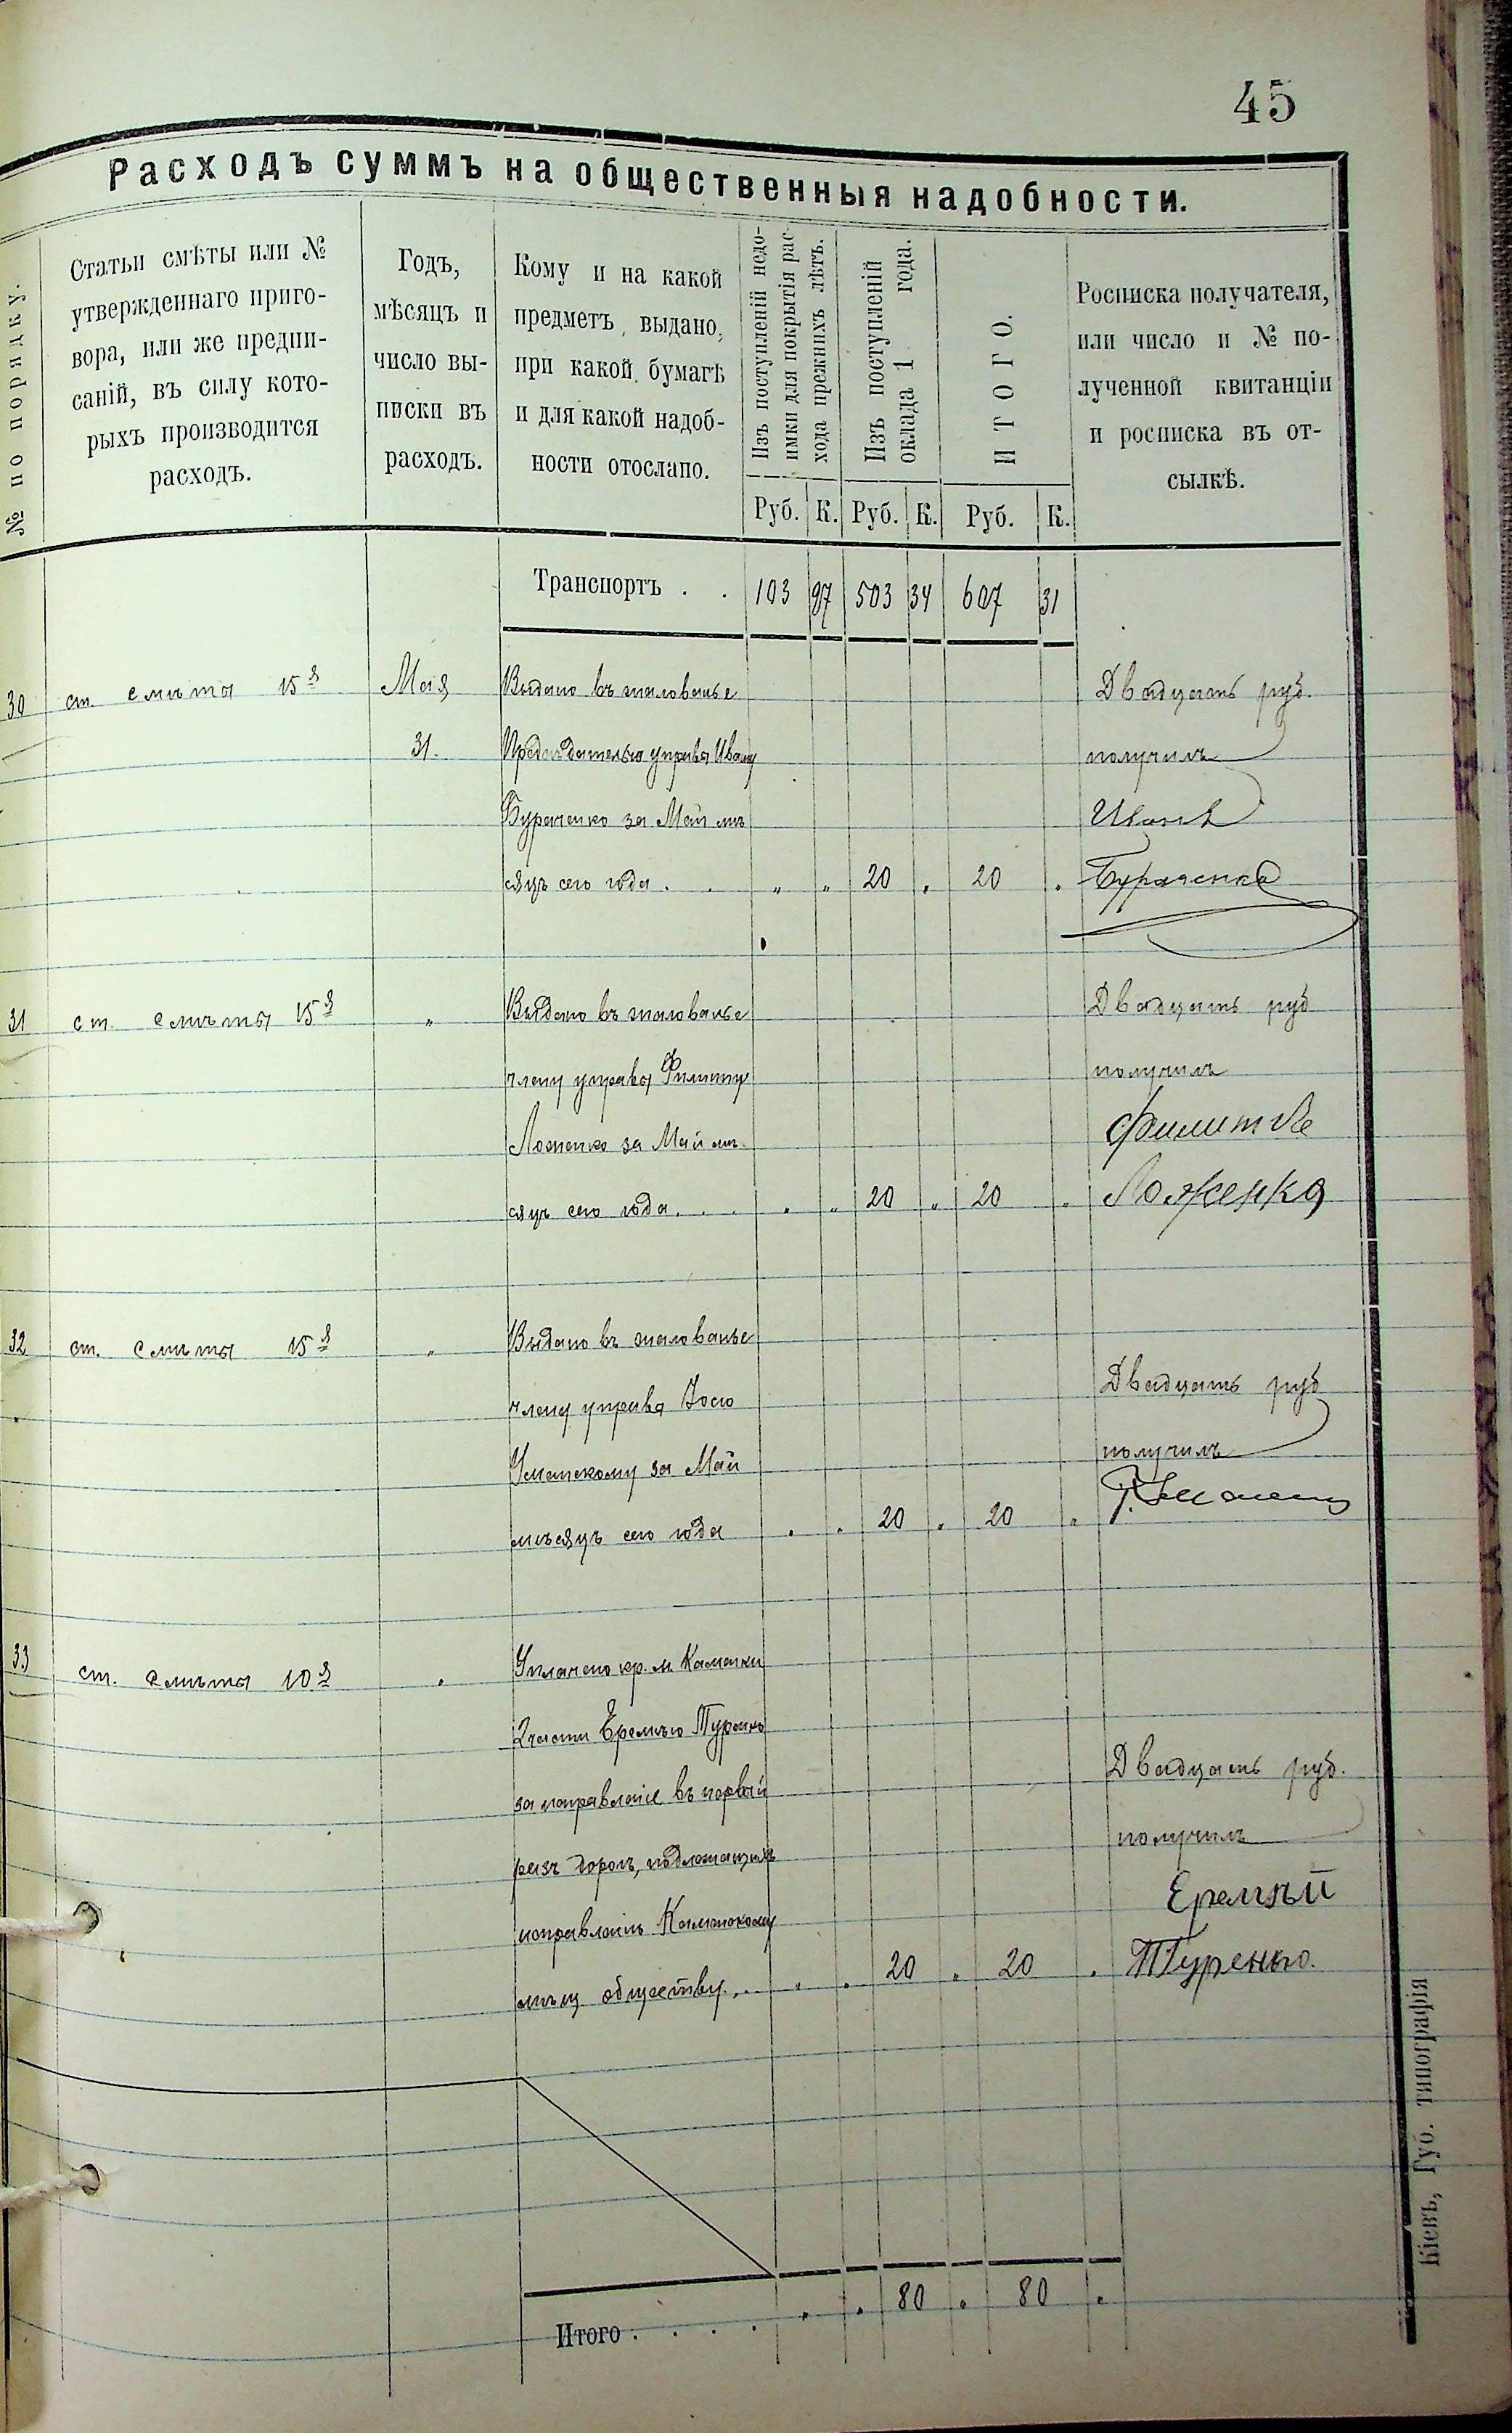 45
Расходъ суммъ на общественныя надобности.
№ по порядку.
Статьи смѣты или №
утвержденнаго приго-
вора, или же предпи-
саній, въ силу кото-
рыхъ производится
расходъ.
Годъ,
мѣсяцъ и
число вы-
писки въ
расходъ.
Кому и на какой
предметъ выдано,
при какой бумагѣ
и для какой надоб-
ности отослано.
Изъ поступленій недо-
имки для покрытія рас-
хода прежнихъ лѣтъ.
Изъ поступленій
оклада 1 года.
ИТОГО.
Росписка получателя,
или число и № по-
лученной квитанціи
и росписка въ от-
сылкѣ.
Руб. К. Руб. К. Руб. К.
Транспортъ . . 103 97 503 34 607 31
30 ст. смѣты 15я Мая Выдано въ жалованье Двадцать руб.
31. Предсѣдателю управы Ивану получилъ
Бураченко за Май мѣ Иванъ
сяцъ сего года . . „ „ 20 „ 20 „ Бураченко
31 ст. смѣты 15я „ Выдано въ жалованье Двадцать руб
члену управы Филиппу получилъ
Ложенко за Май мѣ-
сяцъ сего года . . . „ „ 20 „ 20 „ Ложенко
32 ст. смѣты 15я „ Выдано въ жалованье
члену управы Двадцать руб
Уманскому за Май получилъ
мѣсяцъ сего года „ „ 20 „ 20 „
33 ст. смѣты 10я „ Уплачено кр. м. Каменки
2 части Еремѣю Туренко
за направленіе въ первый Двадцать руб.
разъ дорогъ, подлежащихъ получилъ
исправленію Каменскому Еремѣй
мѣщ обществу . . . „ „ 20 „ 20 „ Туренко.
Итого . . . . „ „ 80 „ 80 „
Кіевъ, Губ. типографія